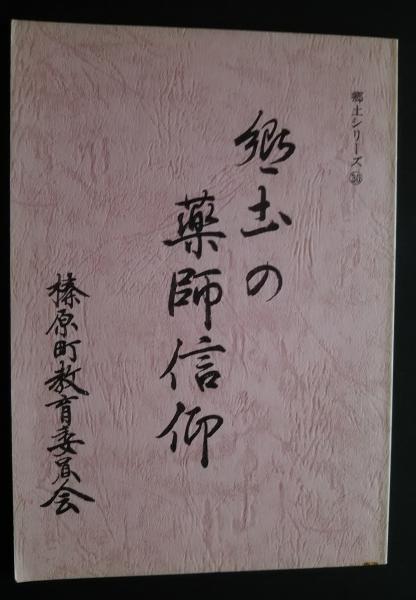 郷土シリーズ㊱
郷土の
薬師信仰
榛原町教育委員会